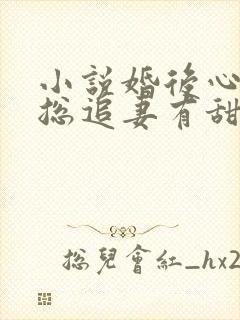 小説婚後心
總追妻有甜
總兒會紅_hx2